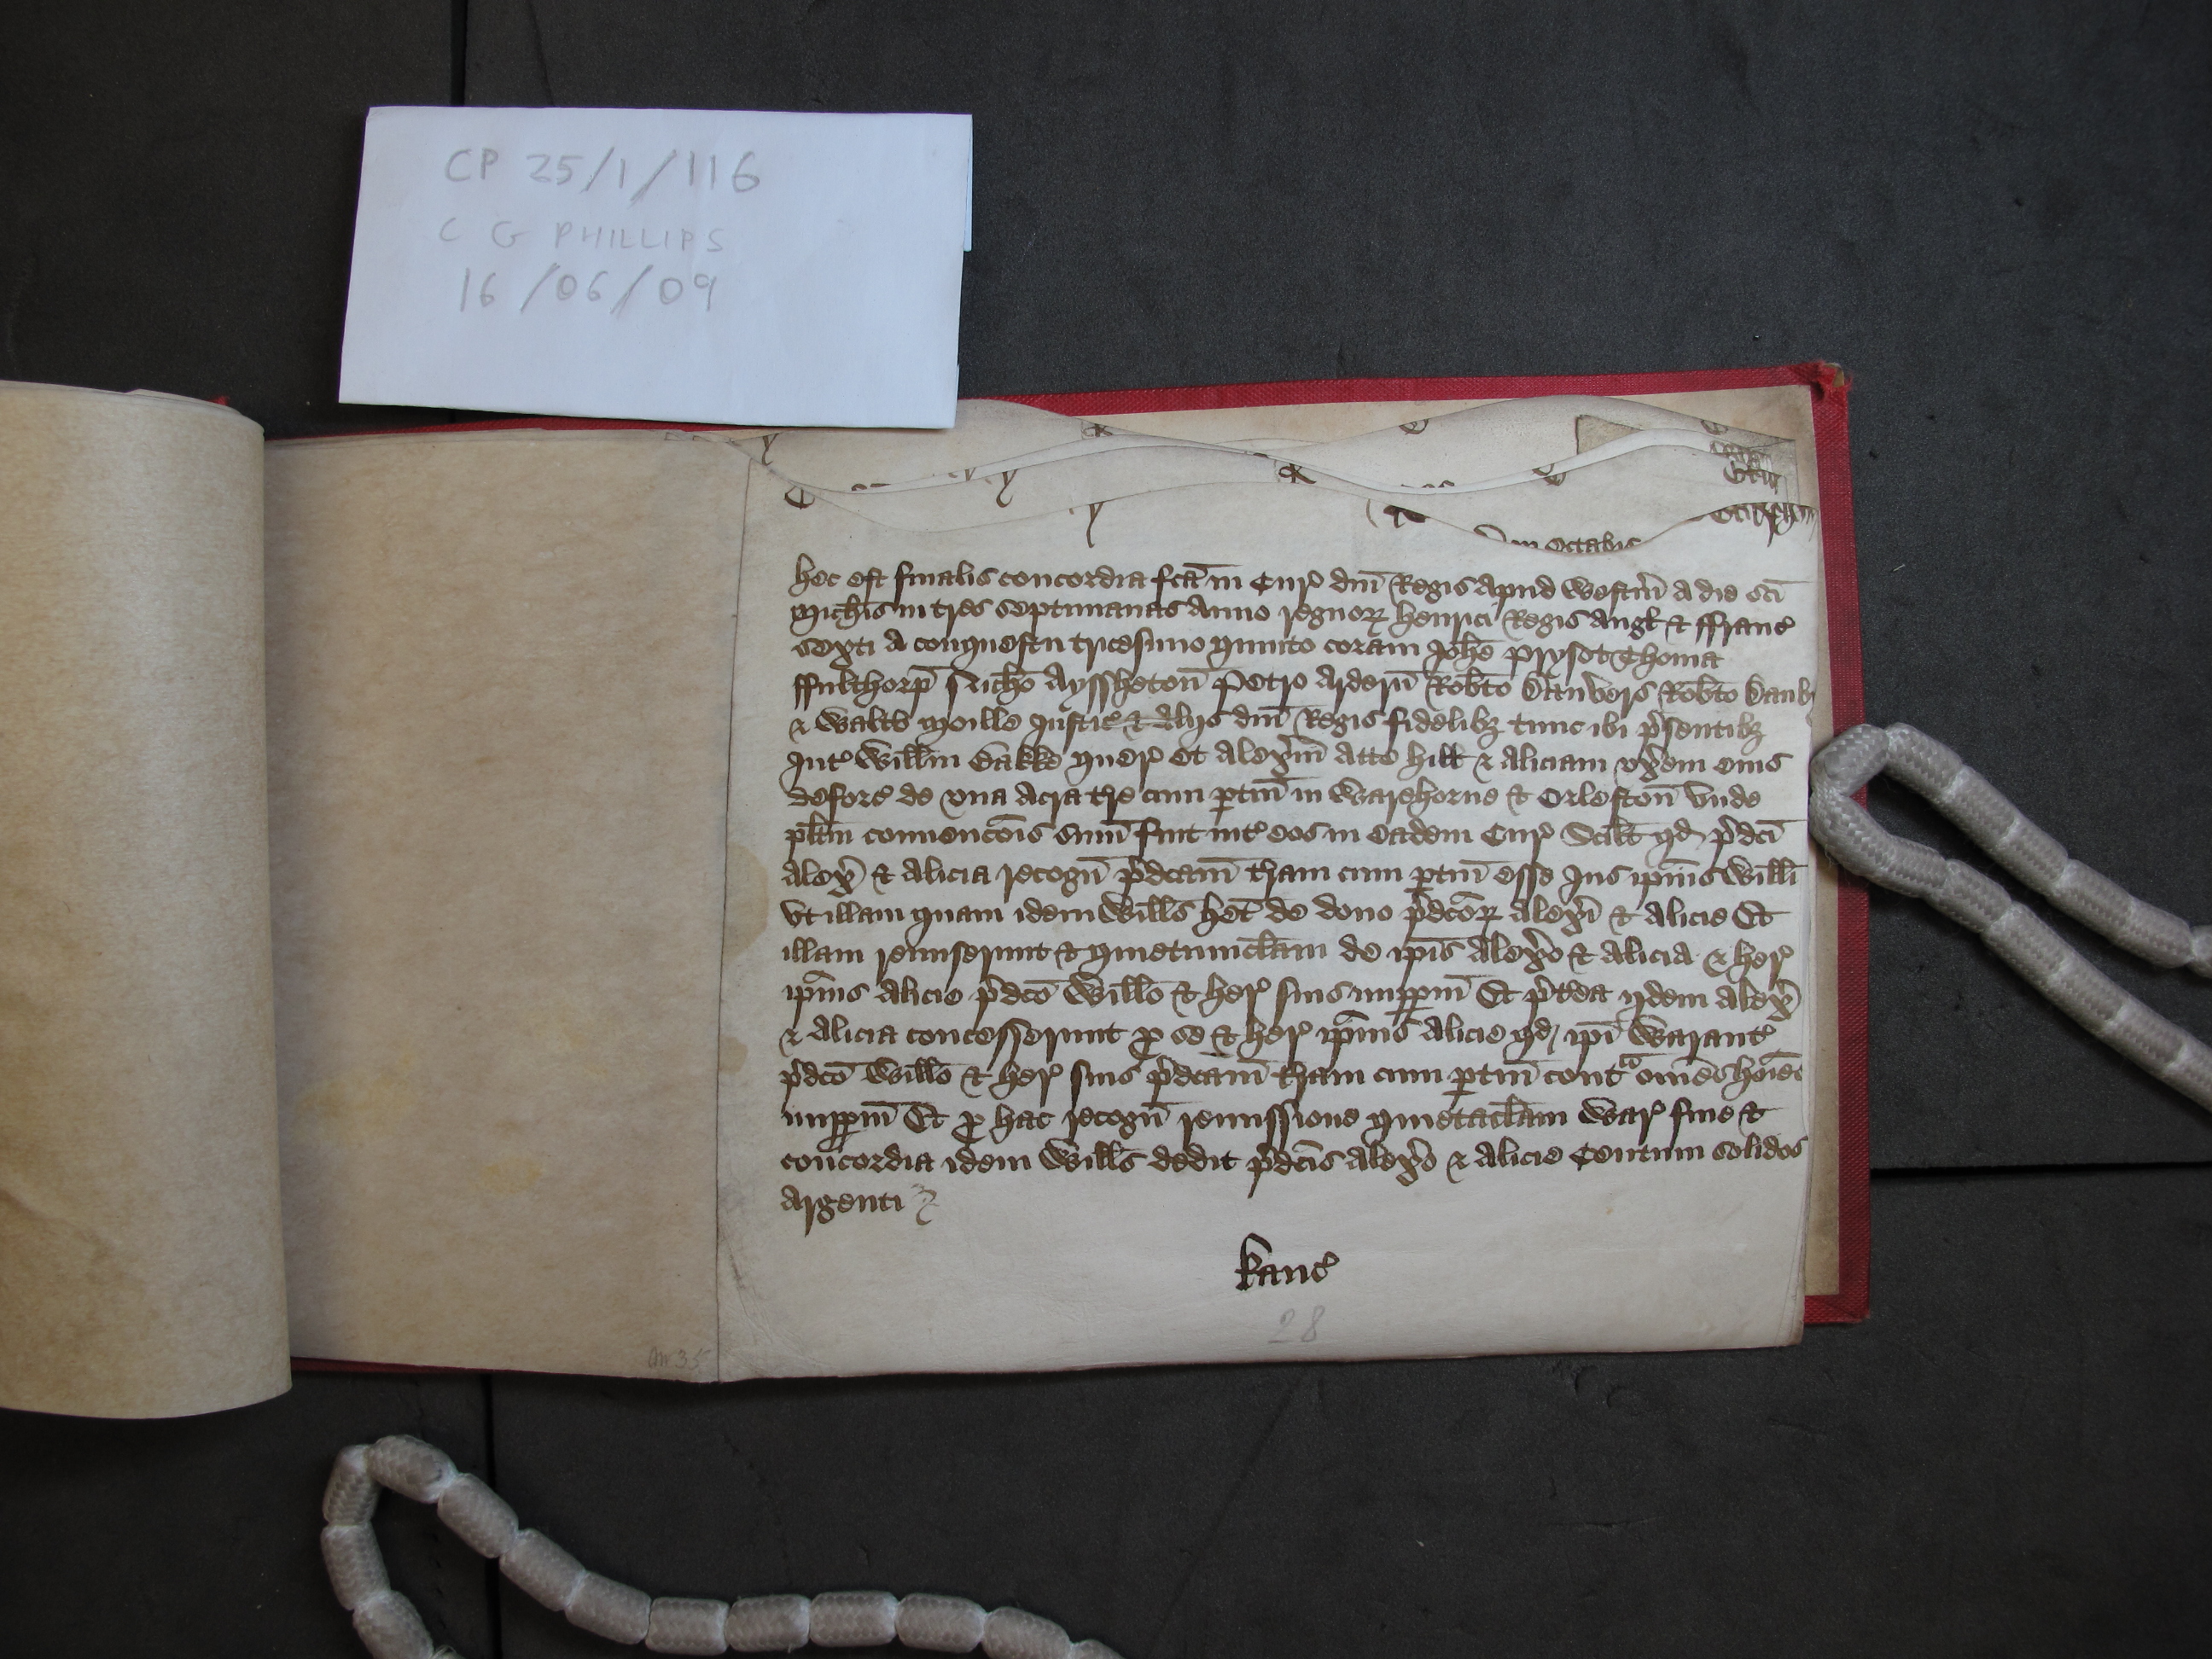 CP 25/1/116
C G PHILLIPS
16/06/09
in Octabis
Hec est finalis concordia fcā in Cur' dnī Regis apud Westm̄ a die scī
Mich̄is in tres septimanas Anno regnoꝝ Henrici Regis Angł & ffranc'
sexti a conquestu tricesimo quinto coram Joh̄e Prysot Thoma
ffulthorp̄ Nich̄o Ayssheton̄ Petro Ardern̄ Rob̄to Danvers Rob̄to Danb
& Walt̄o Moille Justic' & alijs dnī Regis fidelibȝ tunc ibi p'sentibȝ
Int' Willm̄ quer' et Alex̄m Atte Hill & Aliciam vx̄em eius
deforc' de vna acra t're cum p̱tin̄ in Warehorne & Orleston̄ Vnde
plītm convencōis sum̄ fuit int' eos in eadem Cur' Scilt qd p'dcī
Alex̄ & Alicia recogn̄ p'dcam̄ t'ram cum p̱tin̄ esse Jus ip̄ius Willī
vt illam quam idem Wills̄ het̄ de dono p'dcōꝝ Alex̄i & Alicie Et
illam remiserunt & quietumclam̄ de ip̄is Alex̄o & Alicia & her'
ip̄ius Alicie p'dcō Willō & her' suis imp̱p̱m̄ Et p't'ea ijdem Alex̄
& Alicia concesserunt p̱ se & her' ip̄ius Alicie qd ip̄i Warant'
p'dcō Willō & her' suis p'dcam̄ t'ram cum p̱tin̄ contᵃ om̄es hoīes
imp̱p̱m̄ Et p̱ hac recogn̄ remissione quietaclam̄ War' fine &
concordia idem Wills̄ dedit p'dcīs Alex̄o & Alicie Centum solidos
argenti
Kanc'
28
An 35